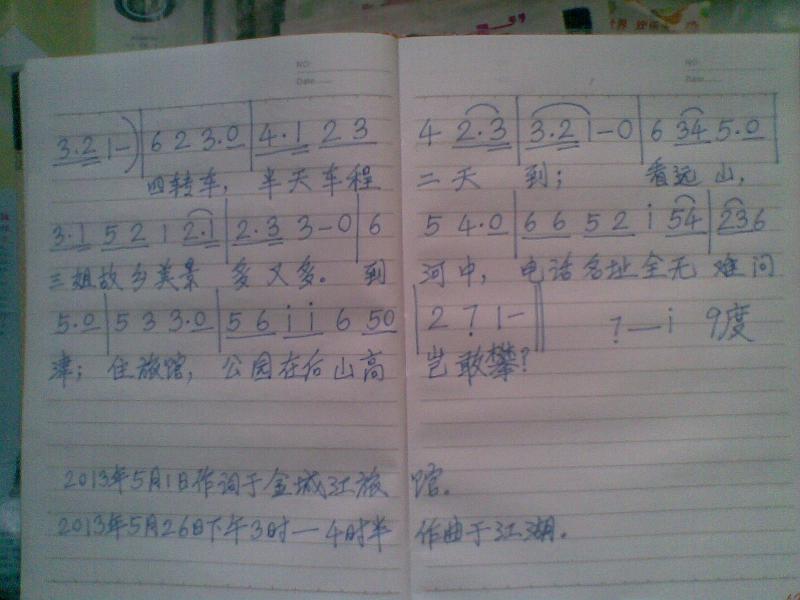 NO:
Date
NO:
Date
3.2 1-) | 6 2 3.0 | 4.1 2 3 4 2.3 | 3.2 i-0 | 6 34 5.0 |
四转车, 半天车程 二天 到; 看远山,
3.1 5 2 1 2.1 | 2.3 3-0 | 6 5 4.0 | 6 6 5 2 i 54 | 236
三姐故乡美景 多又多。 到 河中, 电话名址全无 难问
5.0 | 5 3 3.0 | 5 6 i i 6 50 | 2 7̣ 1- || 7̣—i 9度
津; 住旅馆, 公园在后山高 岂敢攀?
2013年5月1日作词于金城江旅 馆.
2013年5月26日下午3时—4时半 作曲于江湖.